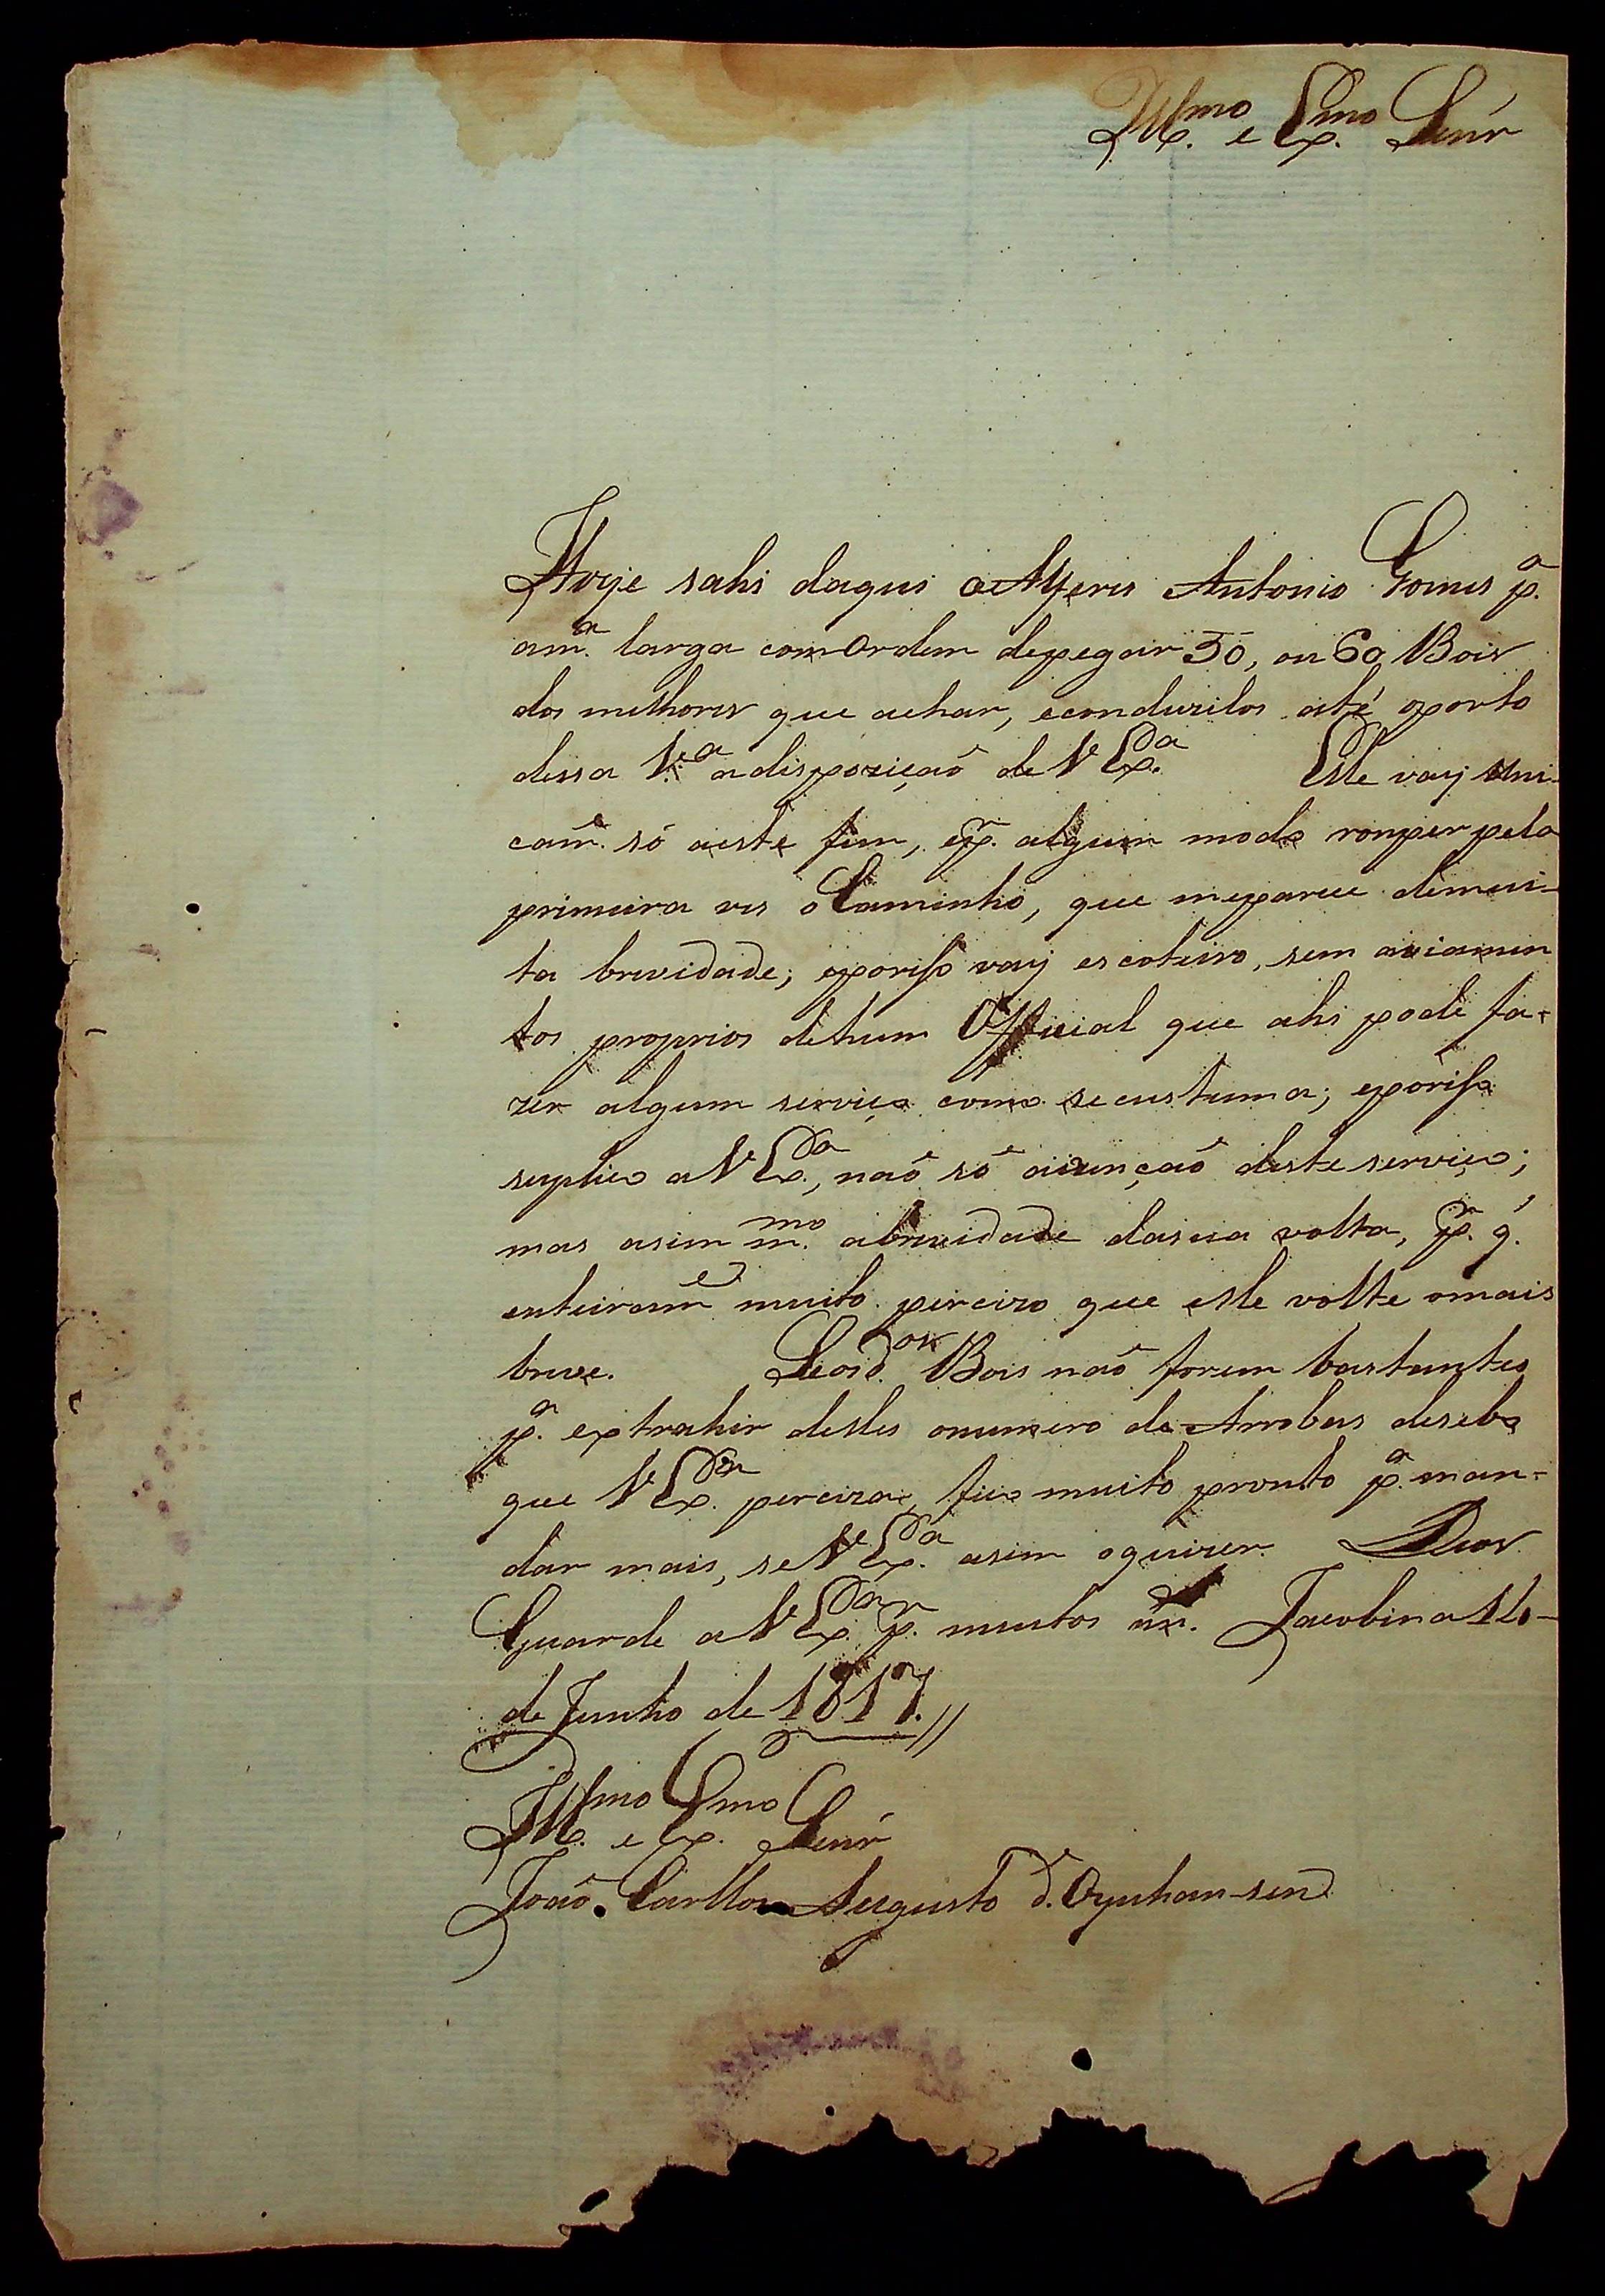 Ill.mo e Ex.mo Senr
Hoje sahi daqui o Alferis Antonio Gomes p.a
am.a larga com Ordem depegar 50, ou 60 Bois
dos milhores que achar, econduzilos até oporto
dessa V.a adispozição de V Ex.a Elle vay uni-
cam.e só aeste fim, ep.r algum modo romper pela
primeira ves o Caminho, que meparece demui-
ta brevidade; eporisso vay escoteiro, sem aviamen
tos proprios dehum Official que ahi pode fa-
zer algum serviço como secustuma; eporisso
suplico a V Ex.a, naõ só aizençaõ deste serviço;
mas asim m.mo abrevidade dasua volta, p.r q'
enteiram.e muito percizo que elle volte omais
breve. Seosd.os Bois naõ forem bastantes
p.a extrahir delles onumero de Arrobas desebo
que V Ex.a perciza, fico muito pronto p.a man-
dar mais, se V Ex.a asim oquizer. Deos
Guarde a V Ex.a p.r muitos an.s Jacobina 16
de Junho de 1817. //
Ill.mo e Ex.mo Senr
Joaõ Carllos Augusto d'Oyenhausen